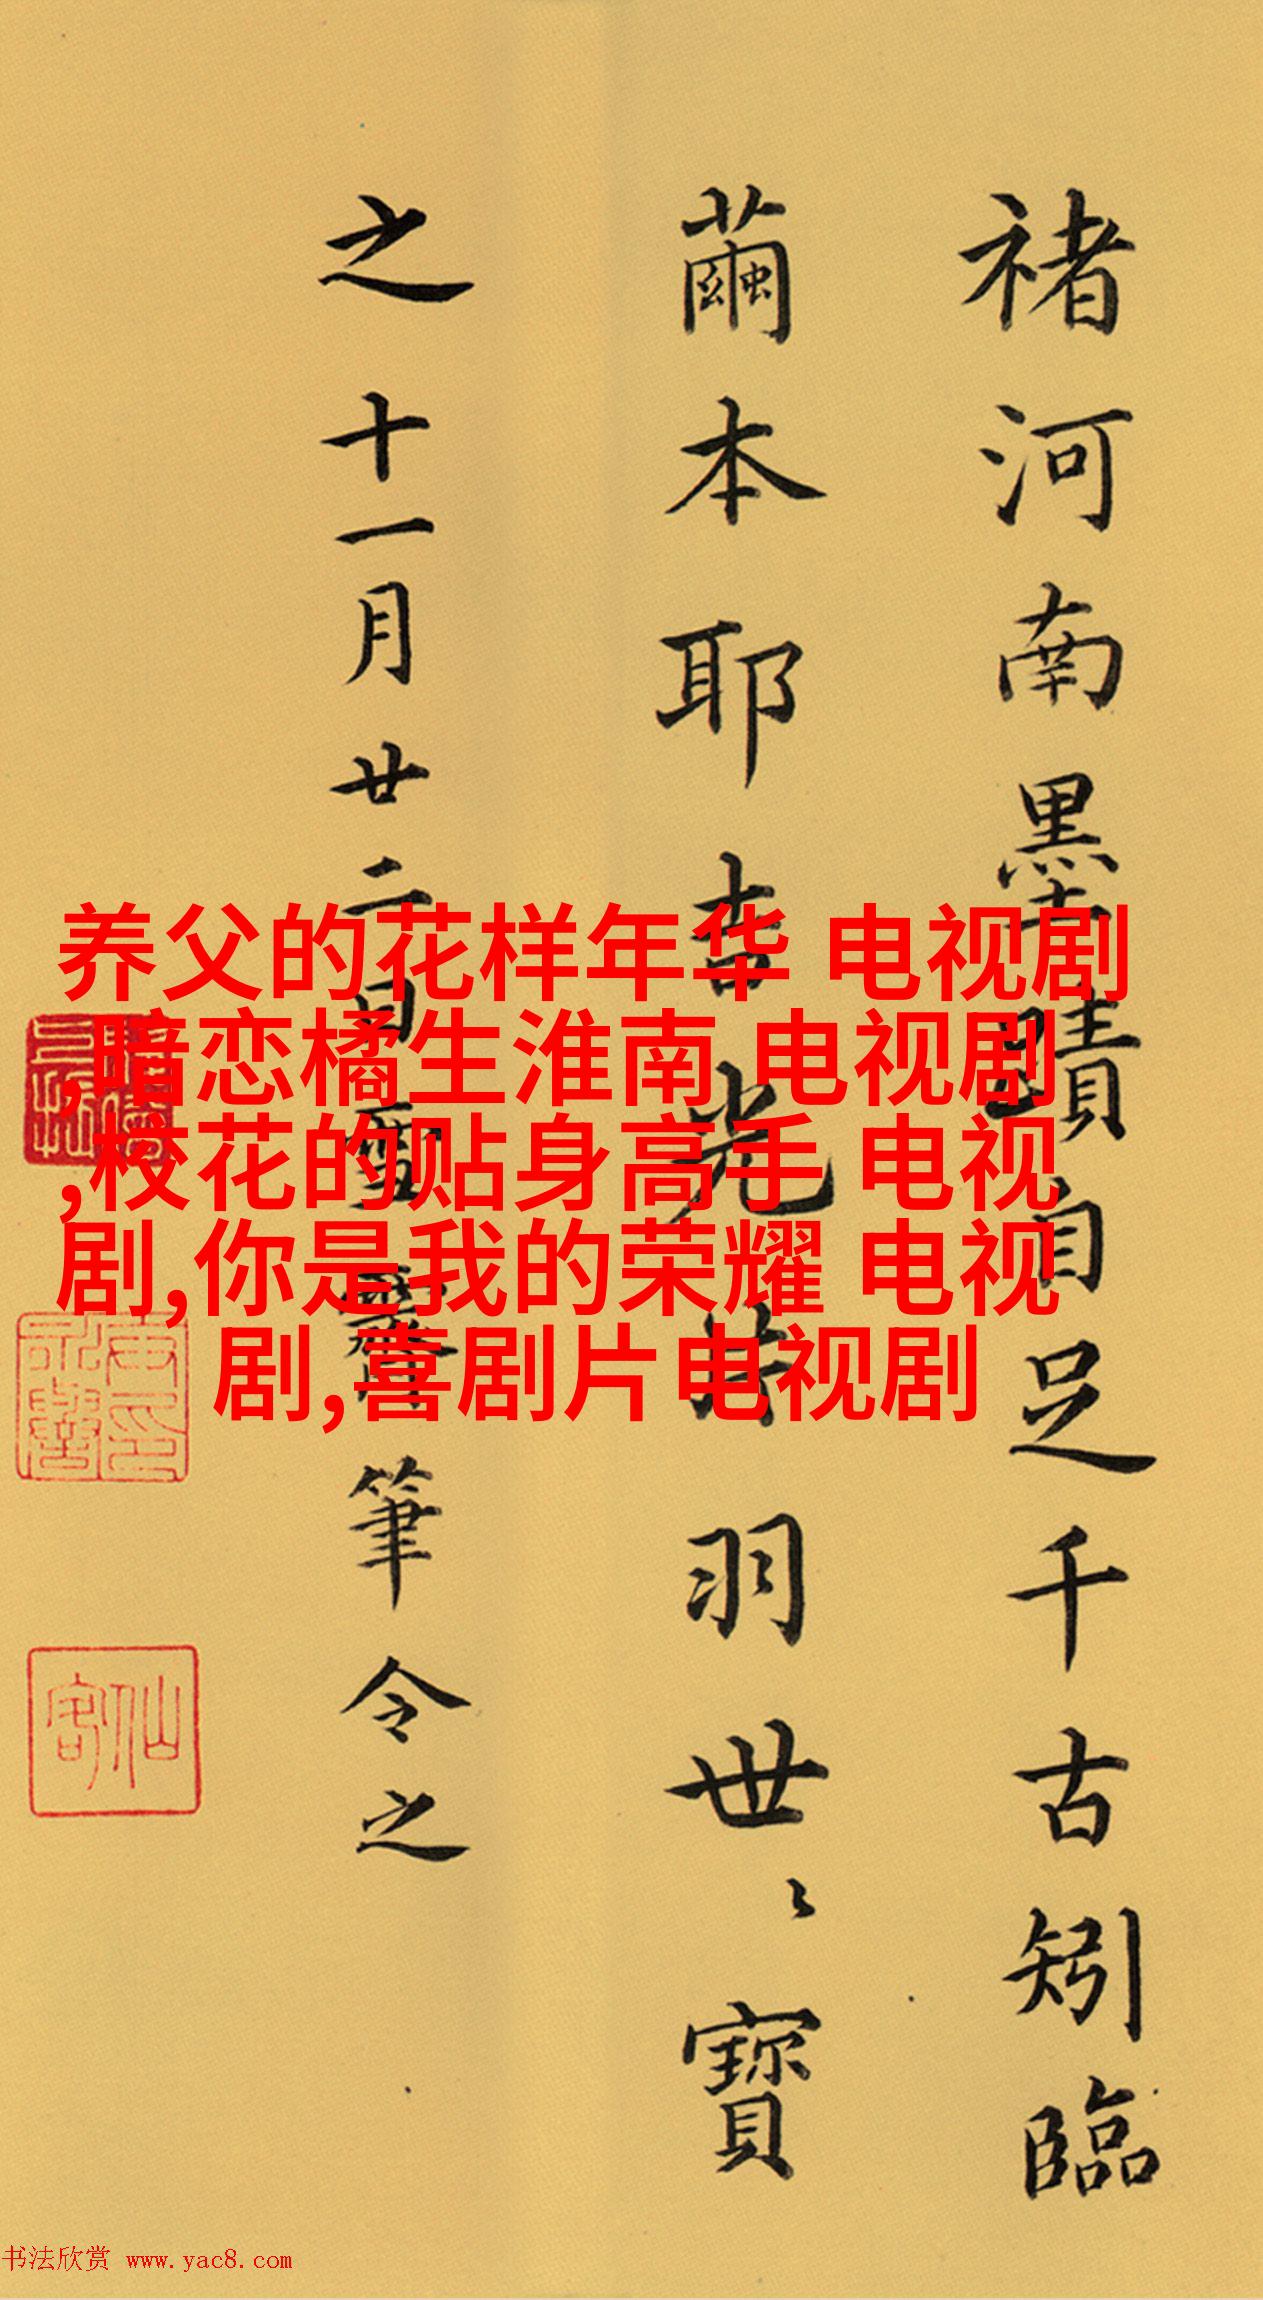 褚河南墨蹟自足千古矧臨
繭本耶吉光片羽世〻寶
之十一月廿二日雪霽筆令之
养父的花样年华 电视剧
,暗恋橘生淮南 电视剧
,校花的贴身高手 电视
剧,你是我的荣耀 电视
剧,喜剧片电视剧
仙客
书法欣赏 www.yac8.com